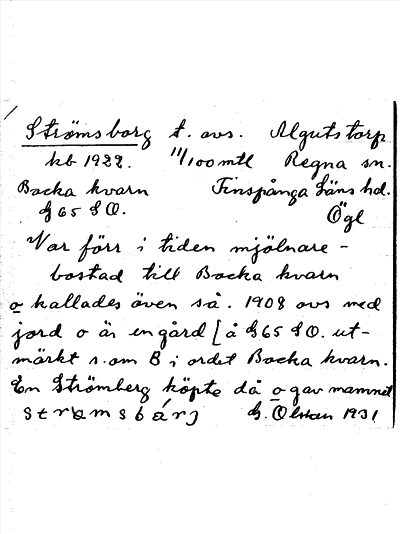 Strömsborg t. avs. Algutstorp
kb 1922. 11/100 mtl Regna sn.
Backa kvarn Finspånga läns hd.
G 65 SO. Ögl
Var förr i tiden mjölnare-
bostad till Backa kvarn
o kallades även så. 1908 avs med
jord o är en gård [å G 65 SO. ut-
märkt s. om B i ordet Backa kvarn.
En Strömberg köpte då o gav namnet
strømsbárj G. Olsson 1931